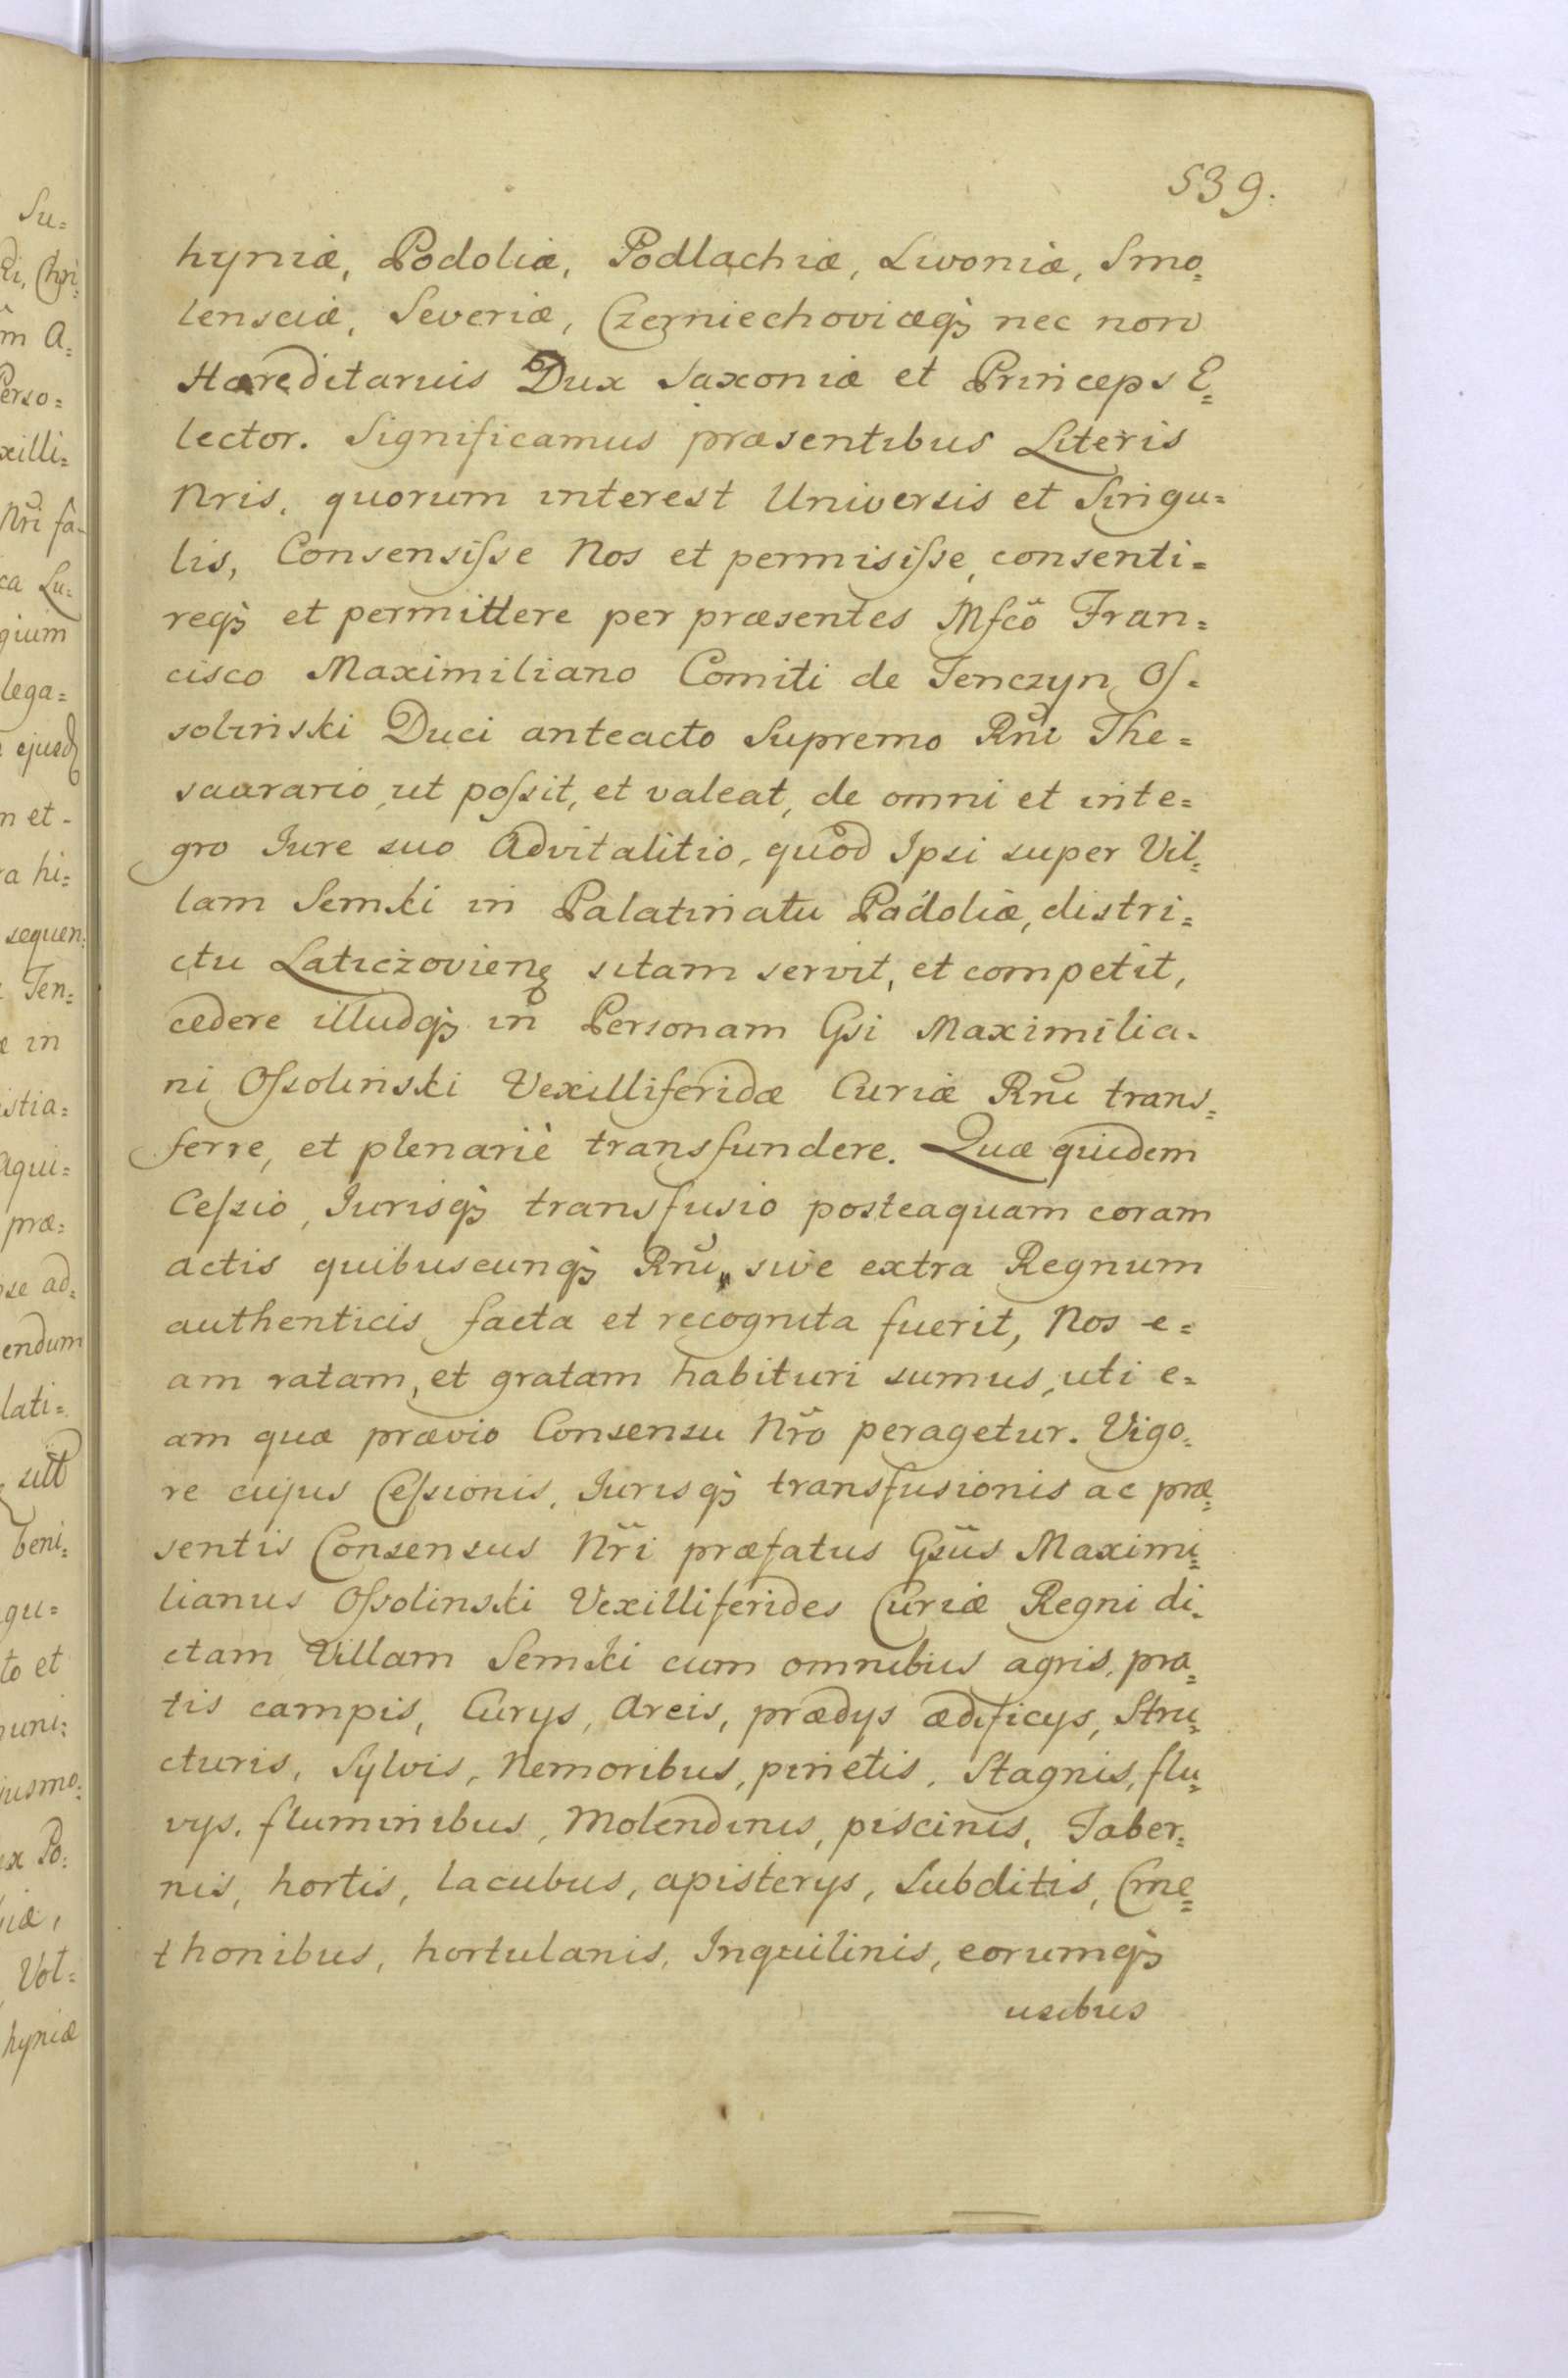 539.
hyniæ, Podoliæ, Podlachiæ, Livoniæ, Smo=
lensciæ, Severiæ, Czerniechoviæq₃ nec non
Hæreditarius Dux Saxoniæ et Princeps E=
lector. Significamus præsentibus Literis
Nris, quorum interest Universis et Singu=
lis, Consensiſse Nos et permisiſse, consenti=
req₃ et permittere per præsentes Mfcõ Fran=
cisco Maximiliano Comiti de Tenczyn Oſ=
soliński Duci anteacto Supremo Rni The=
saurario, ut poſsit, et valeat, de omni et inte=
gro Jure suo Advitalitio, quod Ipsi super Vil=
lam Semki in Palatinatu Podoliæ, distri=
ctu Laticżovien̄ sitam servit, et competit,
cedere illudq₃ in Personam Gsi Maximilia=
ni Oſsoliński Vexilliferidæ Curiæ Rni trans=
ferre, et plenariè transfundere. Quæ quidem
Ceſsio, Jurisq₃ transfusio posteaquam coram
actis quibuscunq₃ Rni, sive extra Regnum
authenticis facta et recognita fuerit, Nos e=
am ratam, et gratam habituri sumus, uti e=
am quæ prævio Consensu Nr̃o peragetur. Vigo=
re cujus Ceſsionis, Jurisq₃ transfusionis ac præ=
sentis Consensus Nr̃i præfatus Gsũs Maximi=
lianus Oſsolinski Vexilliferides Curiæ Regni di=
ctam Villam Semki cum omnibus agris, pra=
tis campis, Curys, Areis, prædys ædificys, Stru=
cturis, Sylvis, Nemoribus, pinetis, Stagnis, flu=
vys, fluminibus, Molendinis, piscinis, Taber=
nis, hortis, lacubus, apisterys, Subditis, Cme=
thonibus, hortulanis, Inquilinis, eorumq₃
usibus